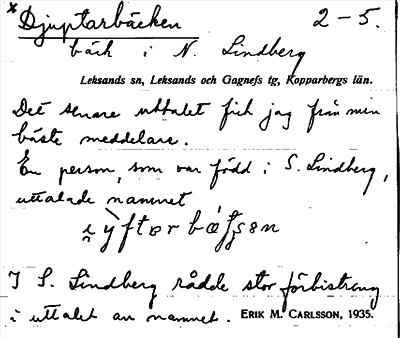 x Djuptarbäcken 2-5.
bäck i N. Lindberg
Leksands sn, Leksands och Gagnefs tg, Kopparbergs län.
Det senare uttalet fick jag från min
bäste meddelare.
En person, som var född i S. Lindberg,
uttalade namnet
I S. Lindberg rådde stor förbistring
i uttalet av namnet. ERIK M. CARLSSON, 1935.